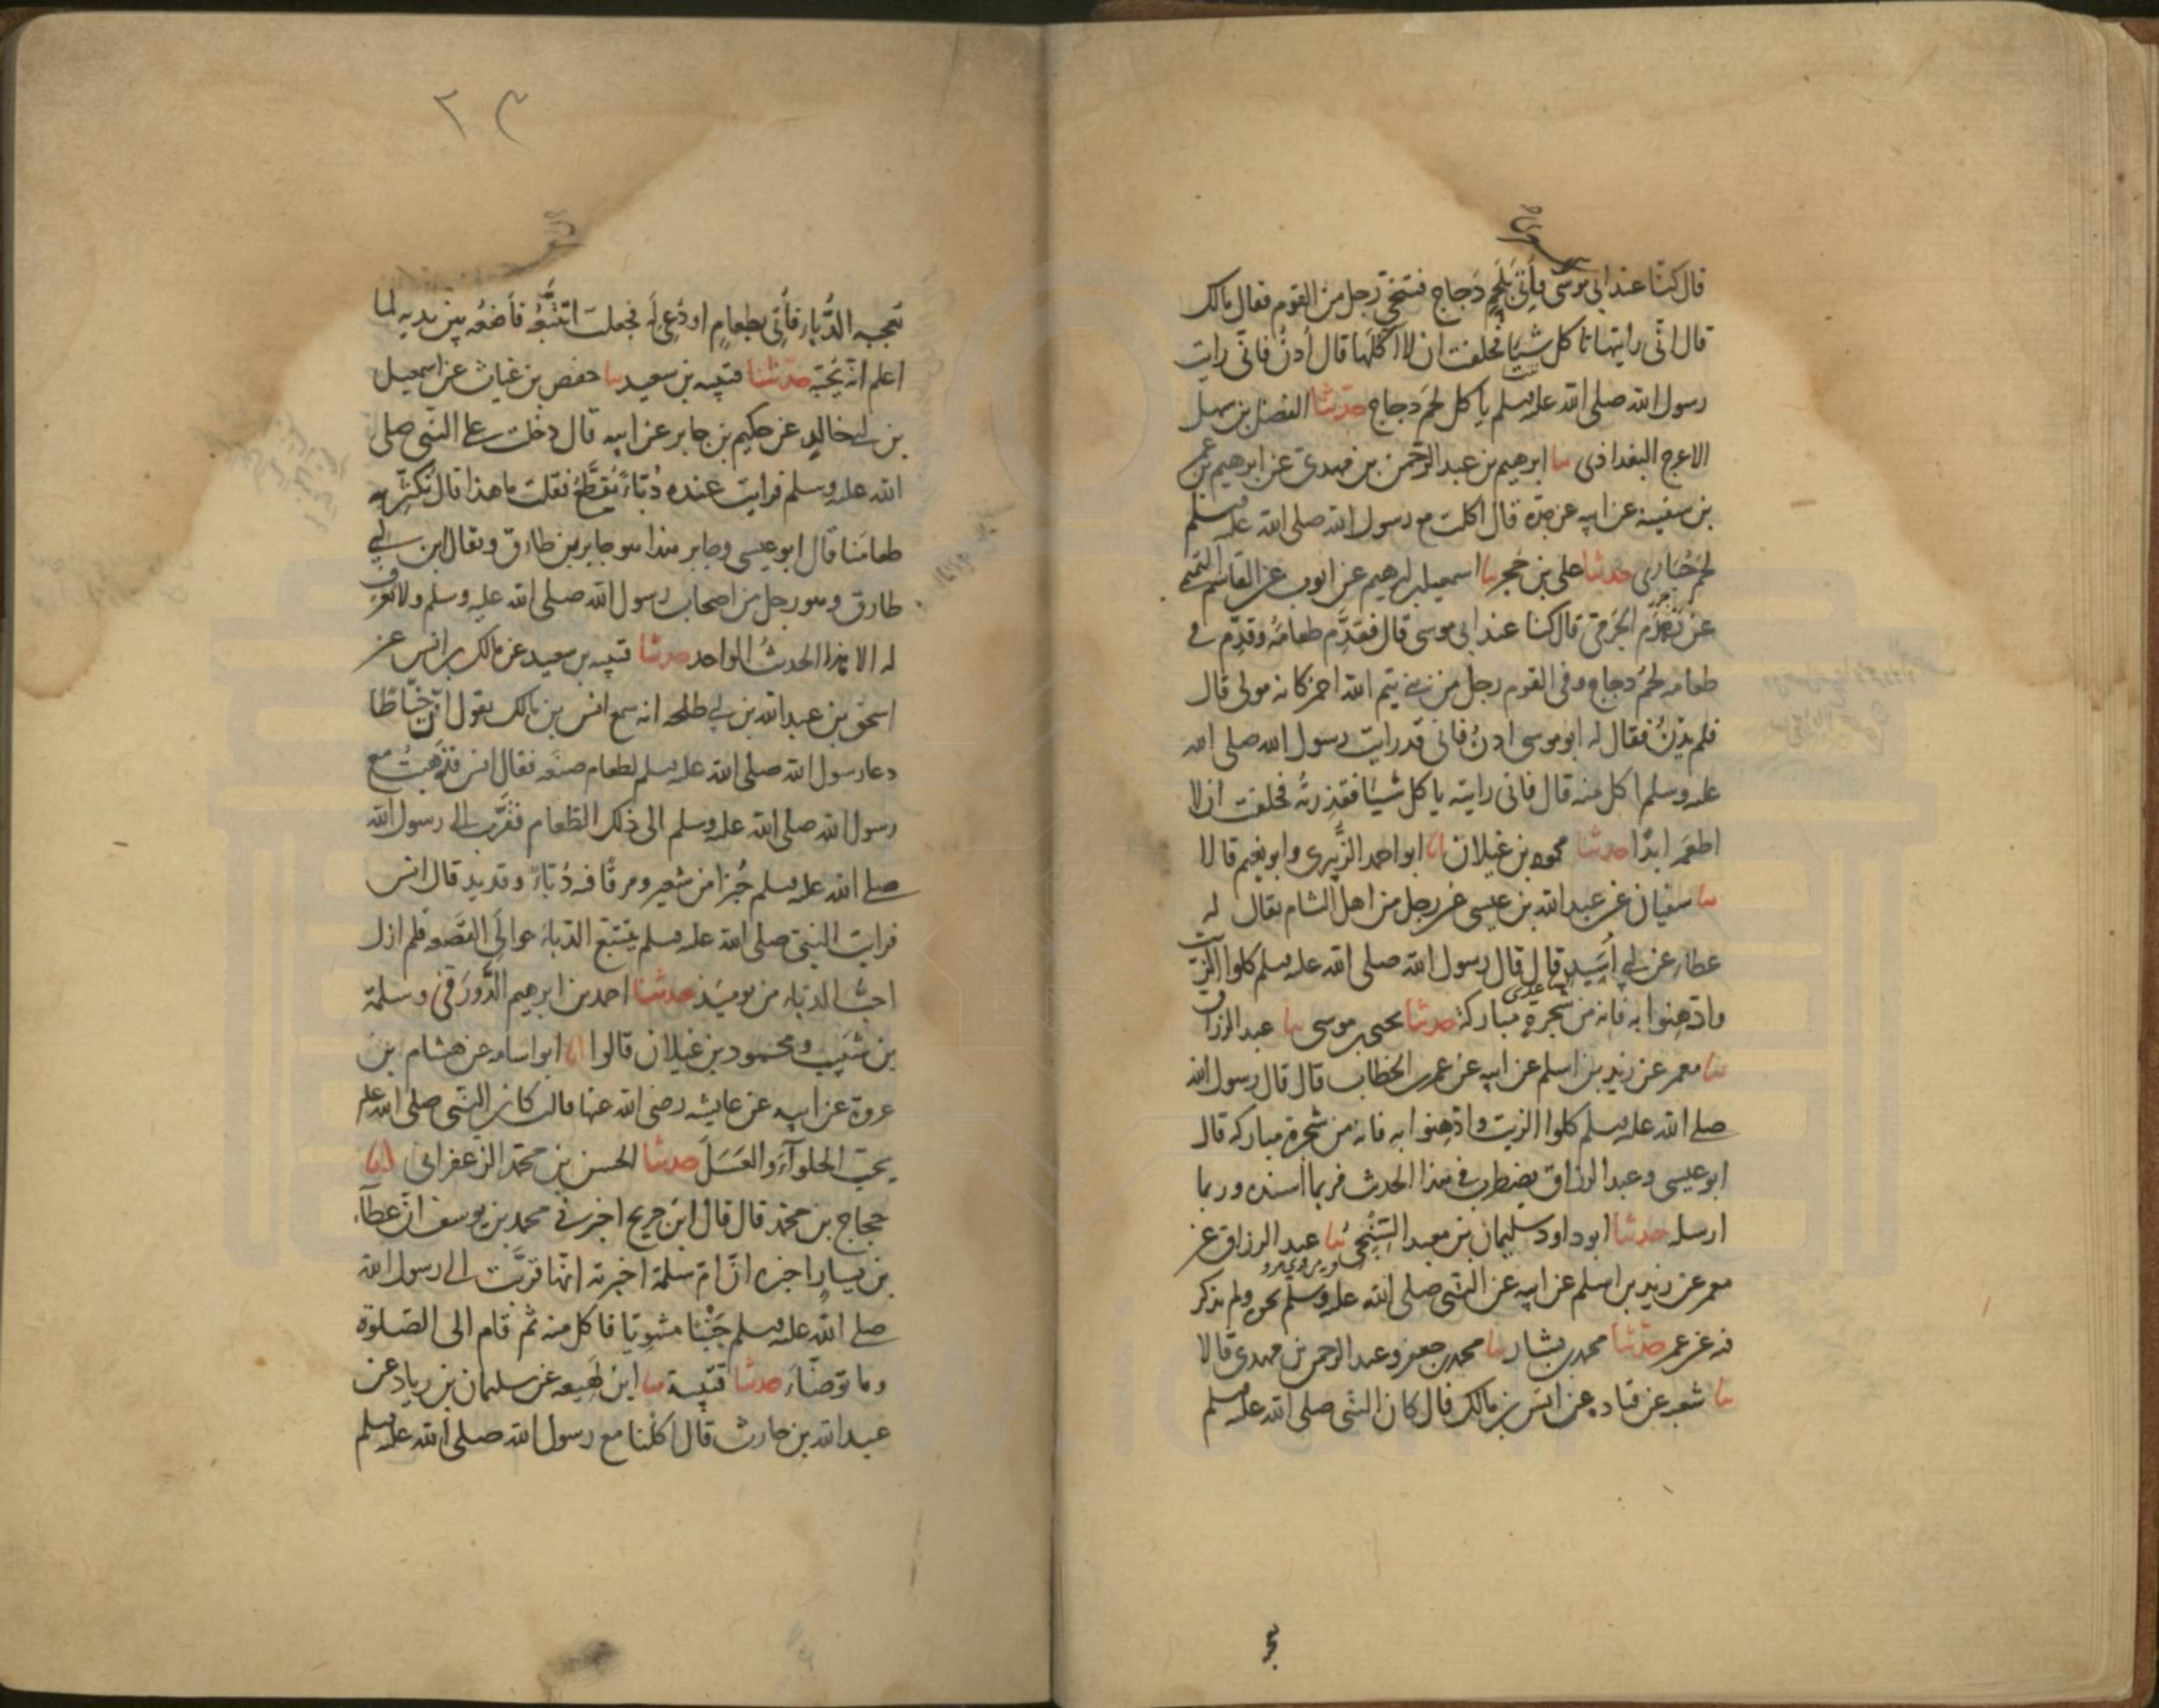 قال كنّا عند ابى موسى فاُتِىَ بلحم دَجاج فتنحّى رجل من القوم فقال مالك
قال انّى رايتها تاكل شيئا فحلفت ان لا اكلها قال اُدنُ فانّى رايت
رسول الله صلى الله عليه وسلم ياكل لحم دجاج حدثنا الفضل بن سهل
الاعرج البغداذى ثنا ابرهيم بن عبد الرحمن بن مهدى عن ابرهيم بن عمر
بن سفينة عن ابيه عن جدّه قال اكلت مع رسول الله صلى الله عليه وسلم
لحم حُبَارى حدثنا على بن حُجر ثنا اسمعيل بن ابرهيم عن ايوب عن القاسم التميمى
عن زَهْدَم الجَرمىّ قال كنا عند ابى موسى قال فقَدَّم طعامَهُ وقدّم فى
طعامه لحمُ دجاج وفى القوم رجل من بنى تيم الله احمر كانه مولى قال
فلم يَدْنُ فقال له ابو موسى ادنُ فانى قد رايت رسول الله صلى الله
عليه وسلم اكل منه قال فانى رايته ياكل شيئا فقذِرتُه فحلفت ان لا
اطعَمَه ابدًا حدثنا محمود بن غيلان انا ابو احمد الزُّبيرى وابو نعيم قالا
ثنا سفيان عن عبد الله بن عيسى عن رجل من اهل الشام يقال له
عطاء عن ابى اَسِيد قال قال رسول الله صلى الله عليه وسلم كلوا الزيت
وادّهِنوا به فانه من شجرةٍ مباركة حدثنا يحيى بن موسى ثنا عبد الرزاق
ثنا معمر عن زيد بن اسلم عن ابيه عن عمر بن الخطاب قال قال رسول الله
صلى الله عليه وسلم كلوا الزيت وادّهِنوا به فانه من شجرة مباركه قال
ابو عيسى وعبد الرزاق يضطرب فى هذا الحديث فربما اسنده وربما
ارسله حدثنا ابو داود سليمان بن معبد السِّنْجى ثنا عبد الرزاق عن
معمر عن زيد بن اسلم عن ابيه عن النبى صلى الله عليه وسلم نحوه ولم يذكر
فيه عن عمر حدّثنا محمد بن بشار ثنا محمد بن جعفر وعبد الرحمن بن مهدى قالا
ثنا شعبه عن قتاده عن انس بن مالك قال كان النبى صلى الله عليه وسلم
٢٣
يعجبه الدُّبّاء فاُتِىَ بطعامٍ او دُعِىَ له فجعلت اتتبّعُه فاَضعُه بين يديه لما
اعلم انّه يُحبّه حدّثنا قتيبه بن سعيد ثنا حفص بن غياث عن اسمعيل
بن ابى خالد عن حكيم بن جابر عن ابيه قال دخلت على النبى صلى
الله عليه وسلم فرايت عنده دُبّاءً يُقطَّع فقلت ما هذا قال نُكثّر به
طعامَنا قال ابو عيسى وجابر هذا هو جابر بن طارق ويقال ابن ابى
طارق وهو رجل من اصحاب رسول الله صلى الله عليه وسلم ولا نعرف
له الا هذا الحديثُ الواحد حدثنا قتيبه بن سعيد عن مالك بن انس عن
اسحق بن عبد الله بن ابى طلحه انه سمع انس بن مالك يقول انّ خيّاطا
دعا رسول الله صلى الله عليه وسلم لطعام صنعه فقال انس فذهبتُ مع
رسول الله صلى الله عليه وسلم الى ذلك الطّعام فقرّب الى رسول الله
صلى الله عليه وسلم خُبزا من شعير ومرقًا فيه دُبّاءٌ وقديد قال انس
فرايت النبىّ صلى الله عليه وسلم يتتبع الدّباءَ حوالَى القَصْعه فلم ازل
احبُّ الدباء من يومئذ حدثنا احمد بن ابرهيم الدَّورَقىّ وسلمة
بن شبيب ومحمود بن غيلان قالوا انا ابو اسامه عن هشام بن
عروة عن ابيه عن عايشه رضى الله عنها قالت كان النبىّ صلى الله عليه
يحبّ الحلوآءَ والعَسَلَ حدثنا الحسن بن محمّد الزعفرانى انا
حجاج بن محمّد قال قال ابن جريج اخبرنى محمد بن يوسف انّ عطآء
بن يسارٍ اخبره انّ امّ سلمة اخبرته انّها قرّبَت الى رسول الله
صلى الله عليه وسلم جَنْبًا مشويّا فاكل منه ثم قام الى الصّلوة
وما توضّأَ حدثنا قتيبة ثنا ابن لَهِيعه عن سليمان بن زياد عن
عبد الله بن حارث قال اكلنا مع رسول الله صلى الله عليه وسلم